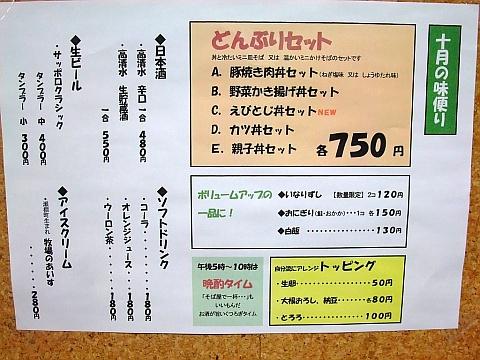 十月の味便り
どんぶりセット
丼と冷たいミニ皿そば 又は 温かいミニかけそばのセットです
A. 豚焼き肉丼セット(ねぎ塩味 又は しょうゆたれ味)
B. 野菜かき揚げ丼セット
C. えびとじ丼セットNEW
D. カツ丼セット
E. 親子丼セット 各750円
ボリュームアップの
一品に!
◆いなりずし 【数量限定】2コ120円
◆おにぎり(鮭・おかか)・・・1コ 各150円
◆白飯 ・・・・・・・・・・・130円
午後5時~10時は
晩酌タイム
「そば屋で一杯・・・」も
いいもんだ
お酒が旨いくつろぎタイム
自分流にアレンジ トッピング
・生卵・・・・・・・・・・・・・50円
・大根おろし、納豆・・・・各80円
・とろろ・・・・・・・・・・・100円
◆日本酒
・高清水 辛口 一合 480円
・高清水 生貯蔵酒
一合 550円
◆生ビール
・サッポロクラシック
タンブラー 中 400円
タンブラー 小 300円
◆ソフトドリンク
・コーラ・・・・・・・180円
・オレンジジュース・・・・180円
・ウーロン茶・・・・・180円
◆アイスクリーム
牧場のあいす
・・・・・・280円